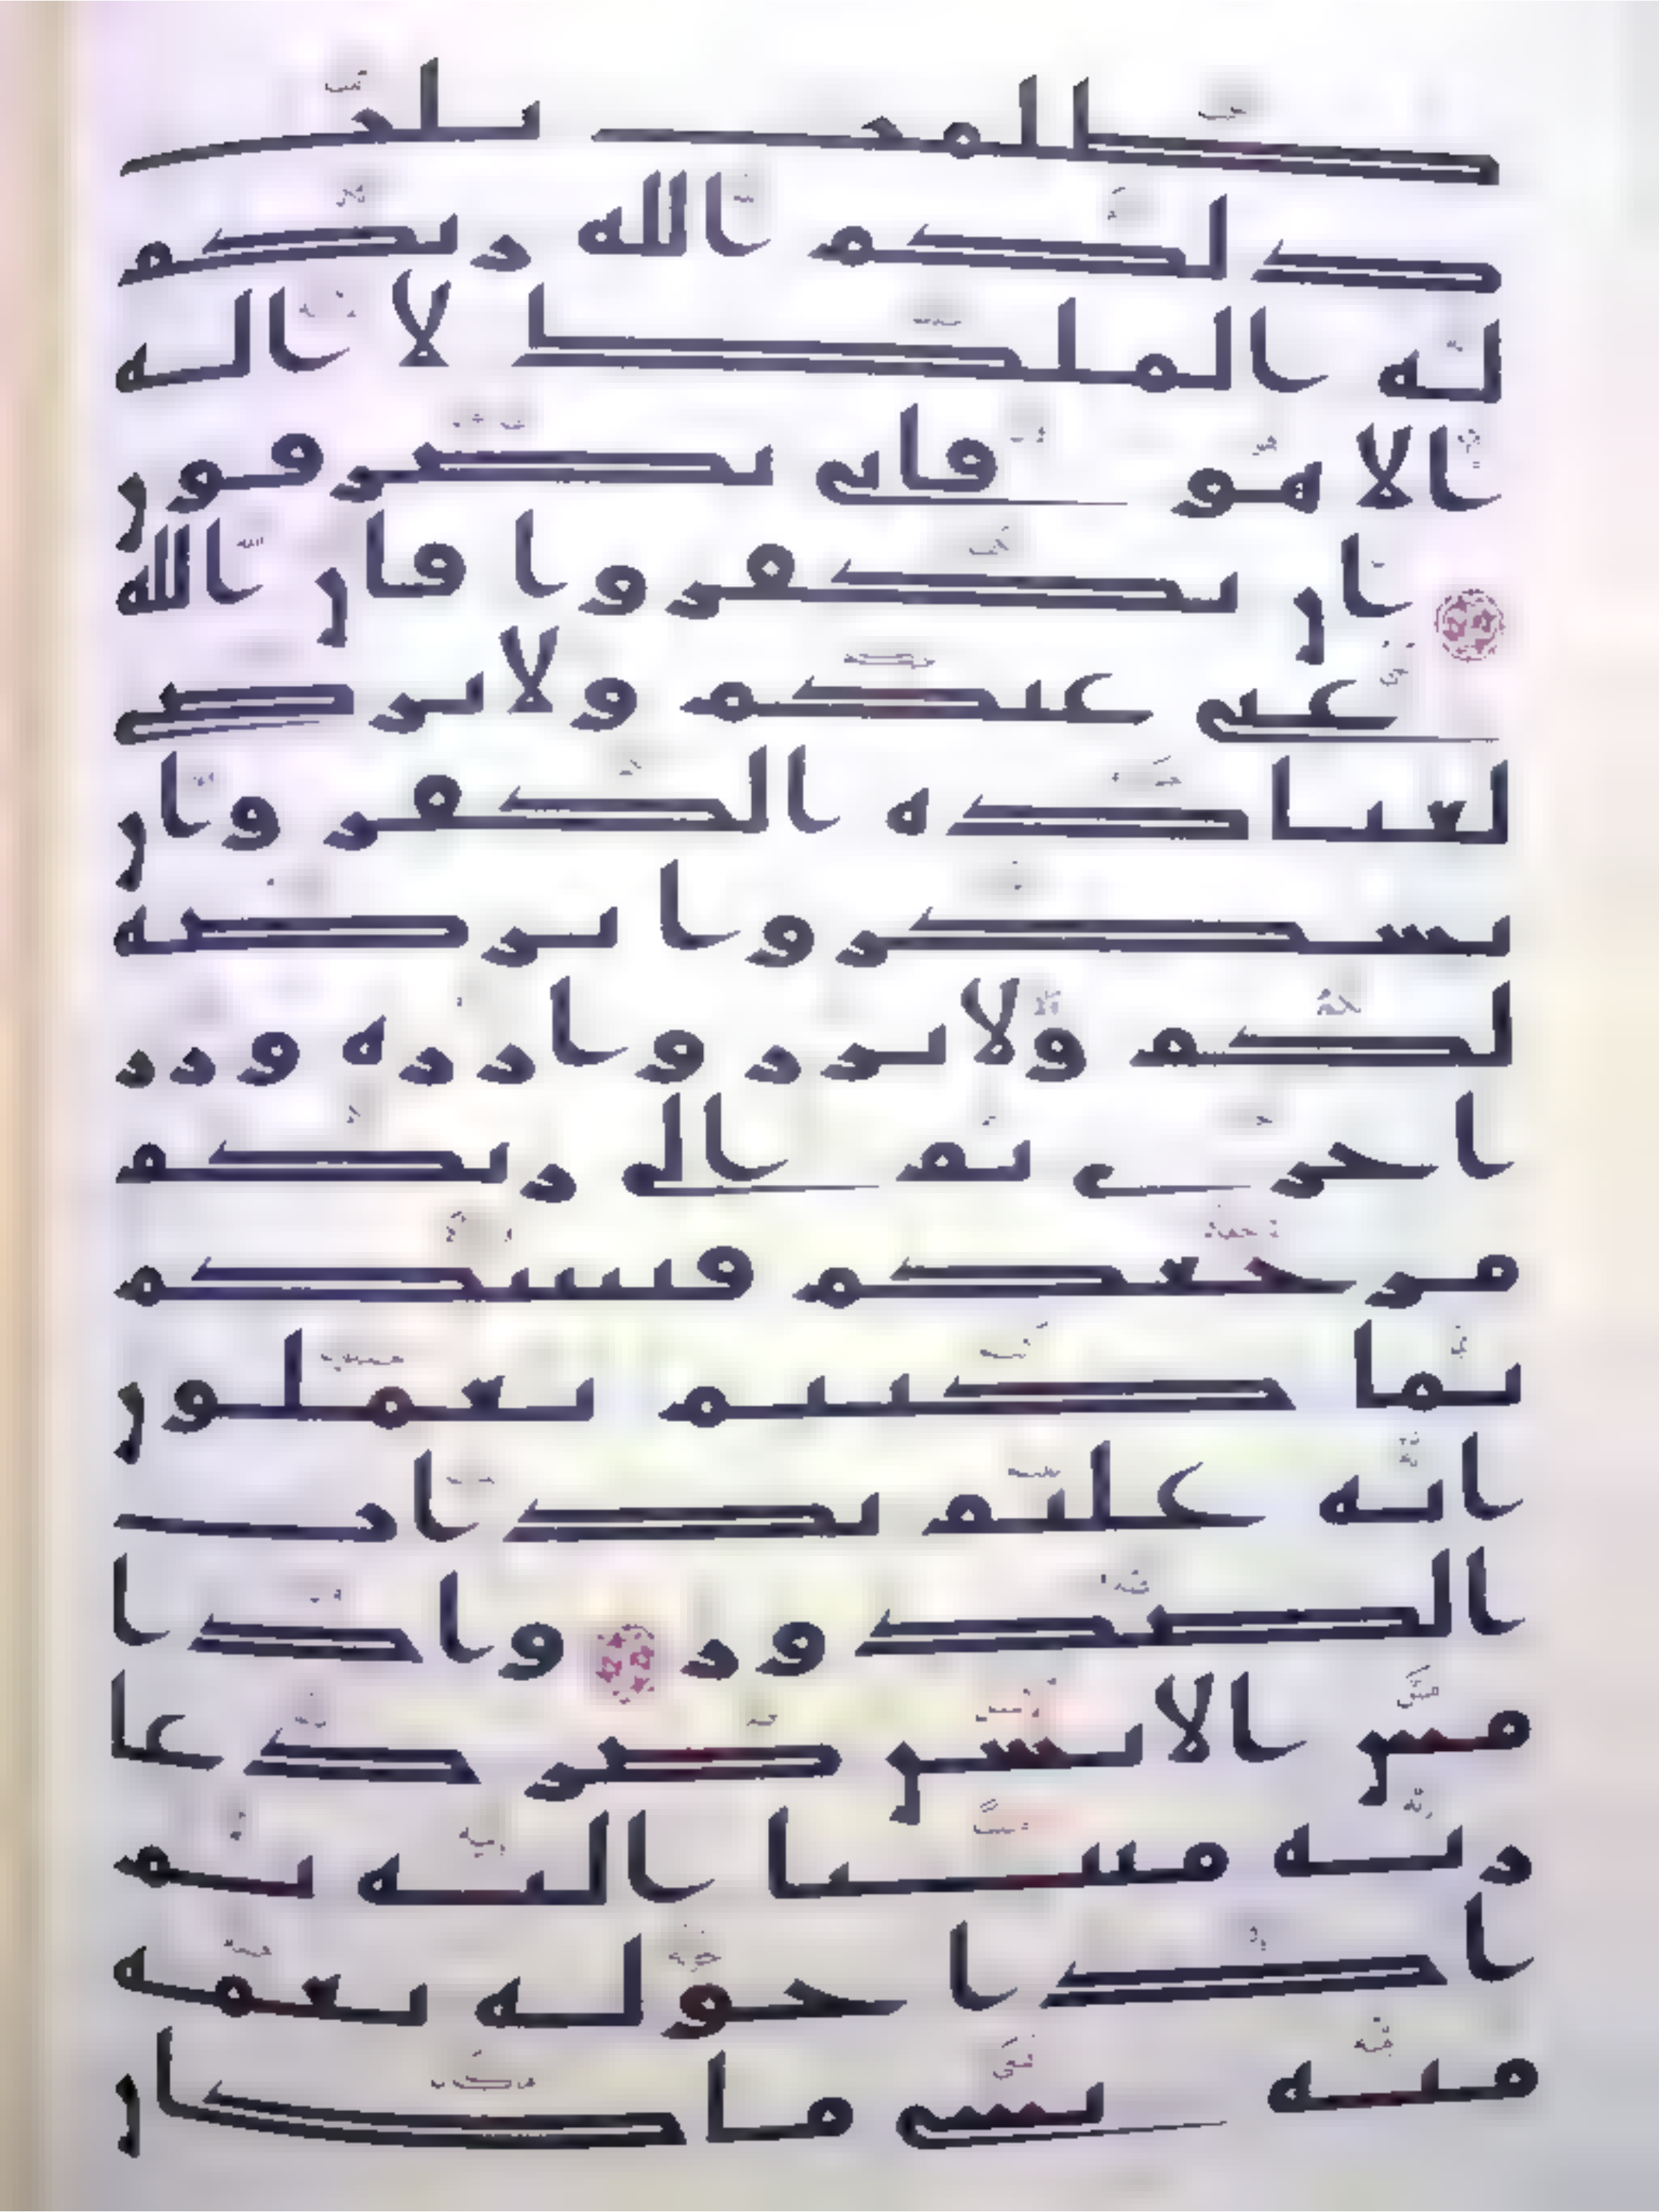 ظلمت ثلث
ذلكم الله ربكم
له الملك لا اله
الا هو فانى تصرفون
ان تكفروا فان الله
غنى عنكم ولا يرضى
لعباده الكفر وان
تشكروا يرضه
لكم ولا تزر وازره وزر
اخرى ثم الى ربكم
مرجعكم فينبئكم
بما كنتم تعملون
انه عليم بذات
الصدور واذا
مس الانسن ضر دعا
ربه منيبا اليه ثم
اذا خوله نعمه
منه نسى ما كان